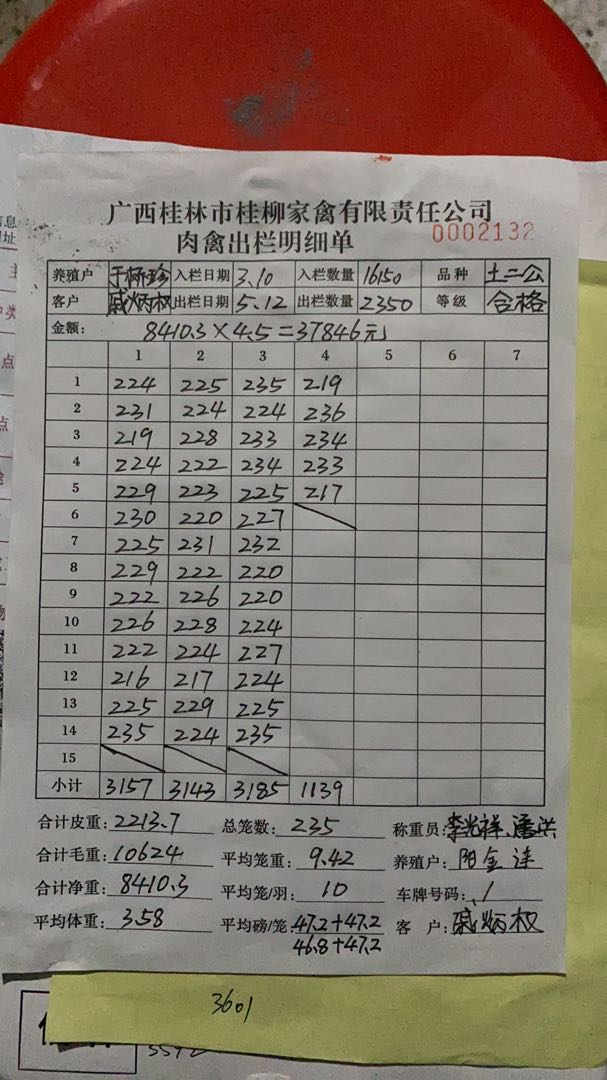 广西桂林市桂柳家禽有限责任公司
肉禽出栏明细单 0002132
养殖户 于桥珍 入栏日期 3.10 入栏数量 16150 品种 土二公
客户 戚炳权 出栏日期 5.12 出栏数量 2350 等级 合格
金额: 8410.3×4.5=37846元
1 2 3 4 5 6 7
1 224 225 235 219
2 231 224 224 236
3 219 228 233 234
4 224 222 234 233
5 229 223 225 217
6 230 220 227
7 225 231 232
8 229 222 220
9 222 226 220
10 226 228 224
11 222 224 227
12 216 217 224
13 225 229 225
14 235 224 235
15
小计 3157 3143 3185 1139
合计皮重: 2213.7 总笼数: 235 称重员: 李光祥、潘洪
合计毛重: 10624 平均笼重: 9.42 养殖户: 阳金
合计净重: 8410.3 平均笼/羽: 10 车牌号码: 1
平均体重: 3.58 平均磅/笼: 47.2+47.2 客户: 戚炳权
46.8+47.2
3601